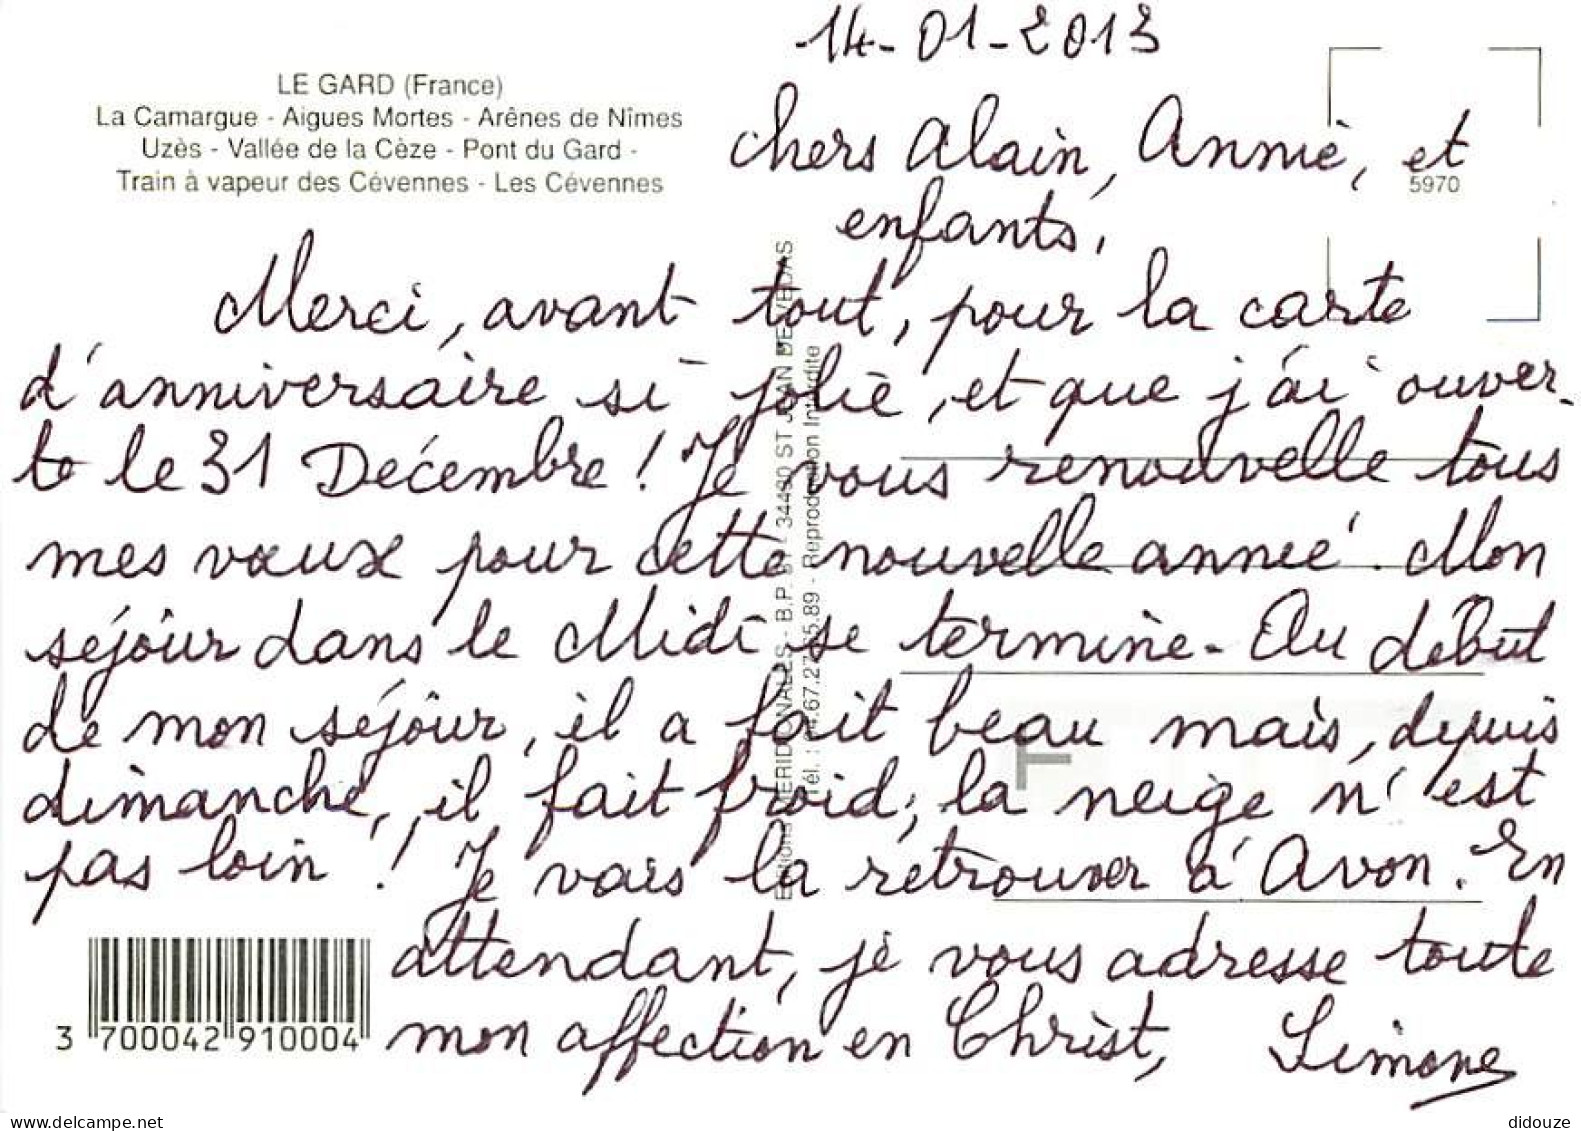 14-01-2013
LE GARD (France)
La Camargue - Aigues Mortes - Arènes de Nîmes
Uzès - Vallée de la Cèze - Pont du Gard -
Train à vapeur des Cévennes - Les Cévennes
5970
chers Alain, Annie, et
enfants,
Merci, avant tout, pour la carte
d'anniversaire si jolie, et que j'ai ouver-
te le 31 Décembre ! Je vous renouvelle tous
mes vœux pour cette nouvelle année. Mon
séjour dans le Midi se termine - Au début
de mon séjour, il a fait beau mais, depuis
dimanche, il fait froid, la neige n'est
pas loin ! Je vais la retrouver à Avon. En
attendant, je vous adresse toute
mon affection en Christ, Simone
3 700042 910004
34430 ST JEAN DE VEDAS
Reproduction Interdite
didouze